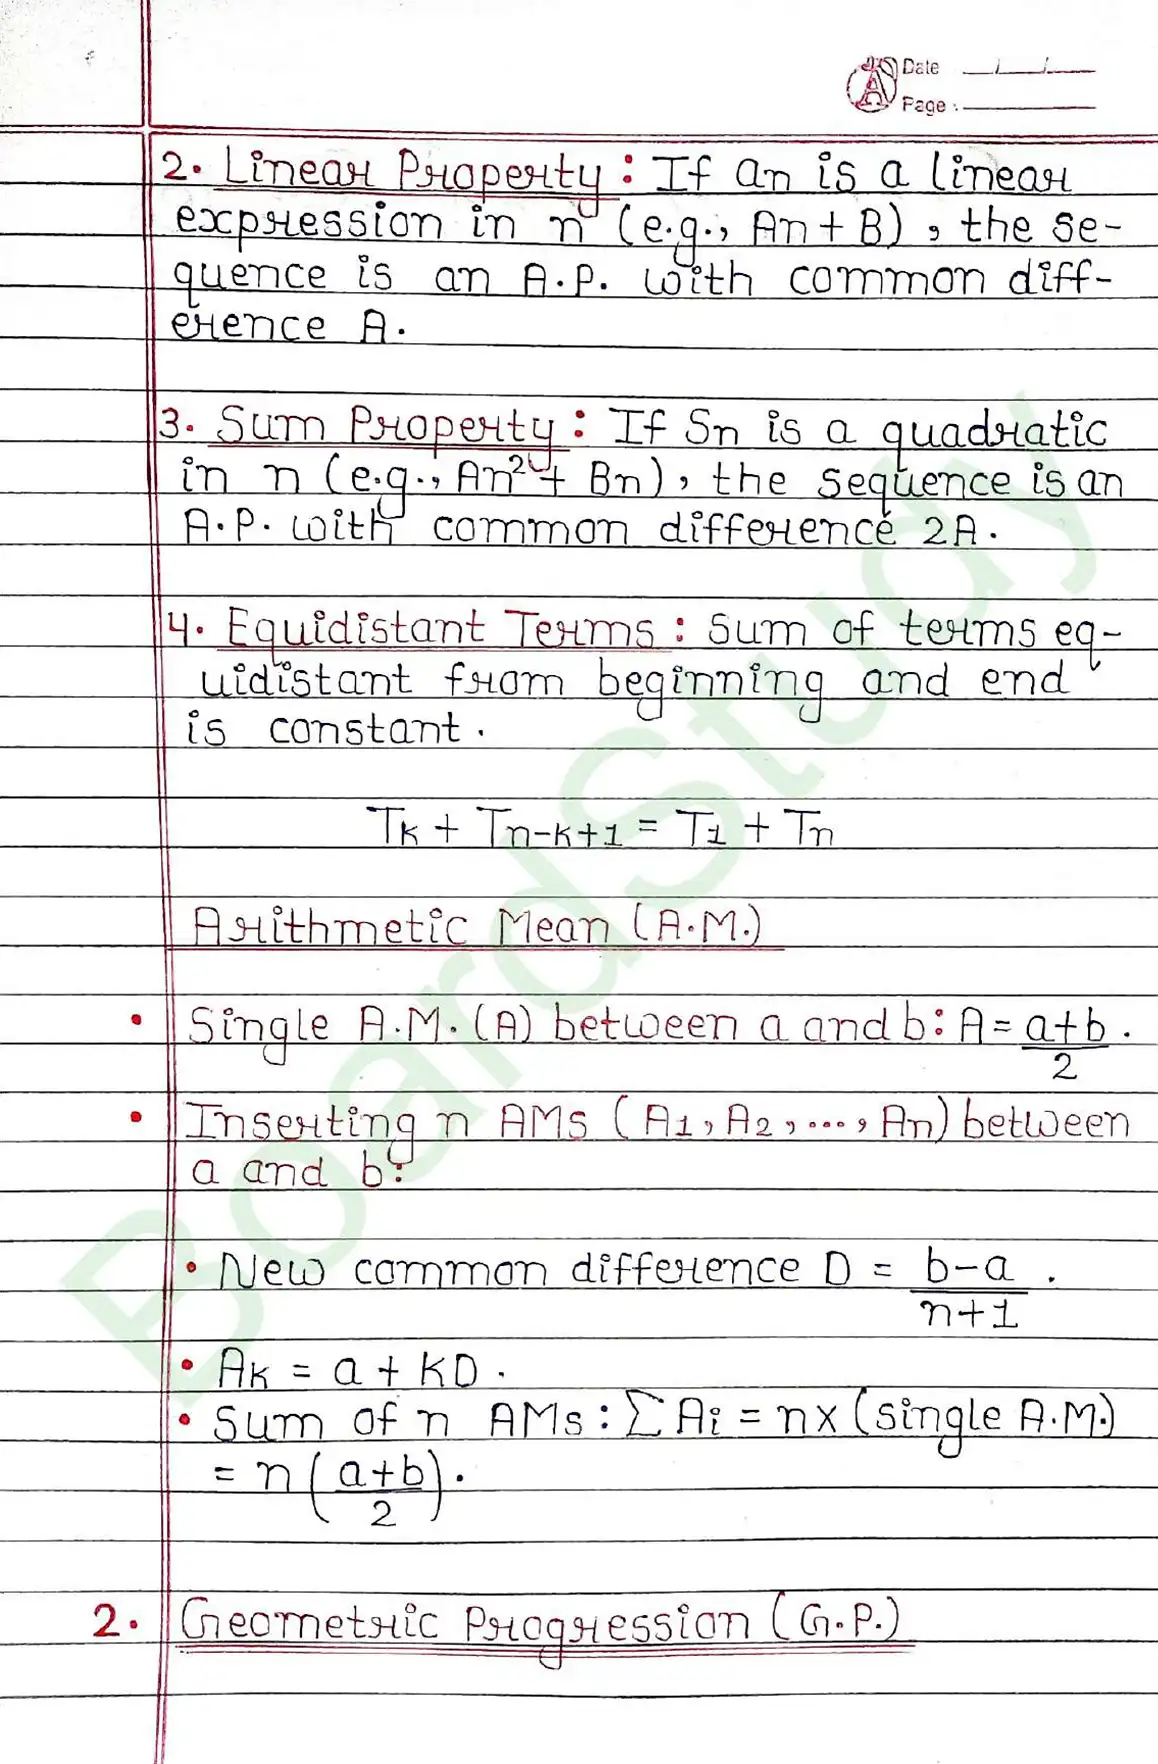 Date __/__/__
Page : ____
2. Linear Property : If an is a linear
expression in n (e.g., An + B), the se-
quence is an A.P. with common diff-
erence A.
3. Sum Property : If Sn is a quadratic
in n (e.g., An² + Bn), the sequence is an
A.P. with common difference 2A.
4. Equidistant Terms : Sum of terms eq-
uidistant from beginning and end
is constant.
Tk + Tn-k+1 = T1 + Tn
Arithmetic Mean (A.M.)
• Single A.M. (A) between a and b: A = a+b/2 .
• Inserting n AMs (A1, A2, ..., An) between
a and b:
• New common difference D = b-a/n+1 .
• Ak = a + KD .
• Sum of n AMs : ∑ Ai = n x (single A.M.)
= n (a+b/2) .
2. Geometric Progression (G.P.)
BoardStudy